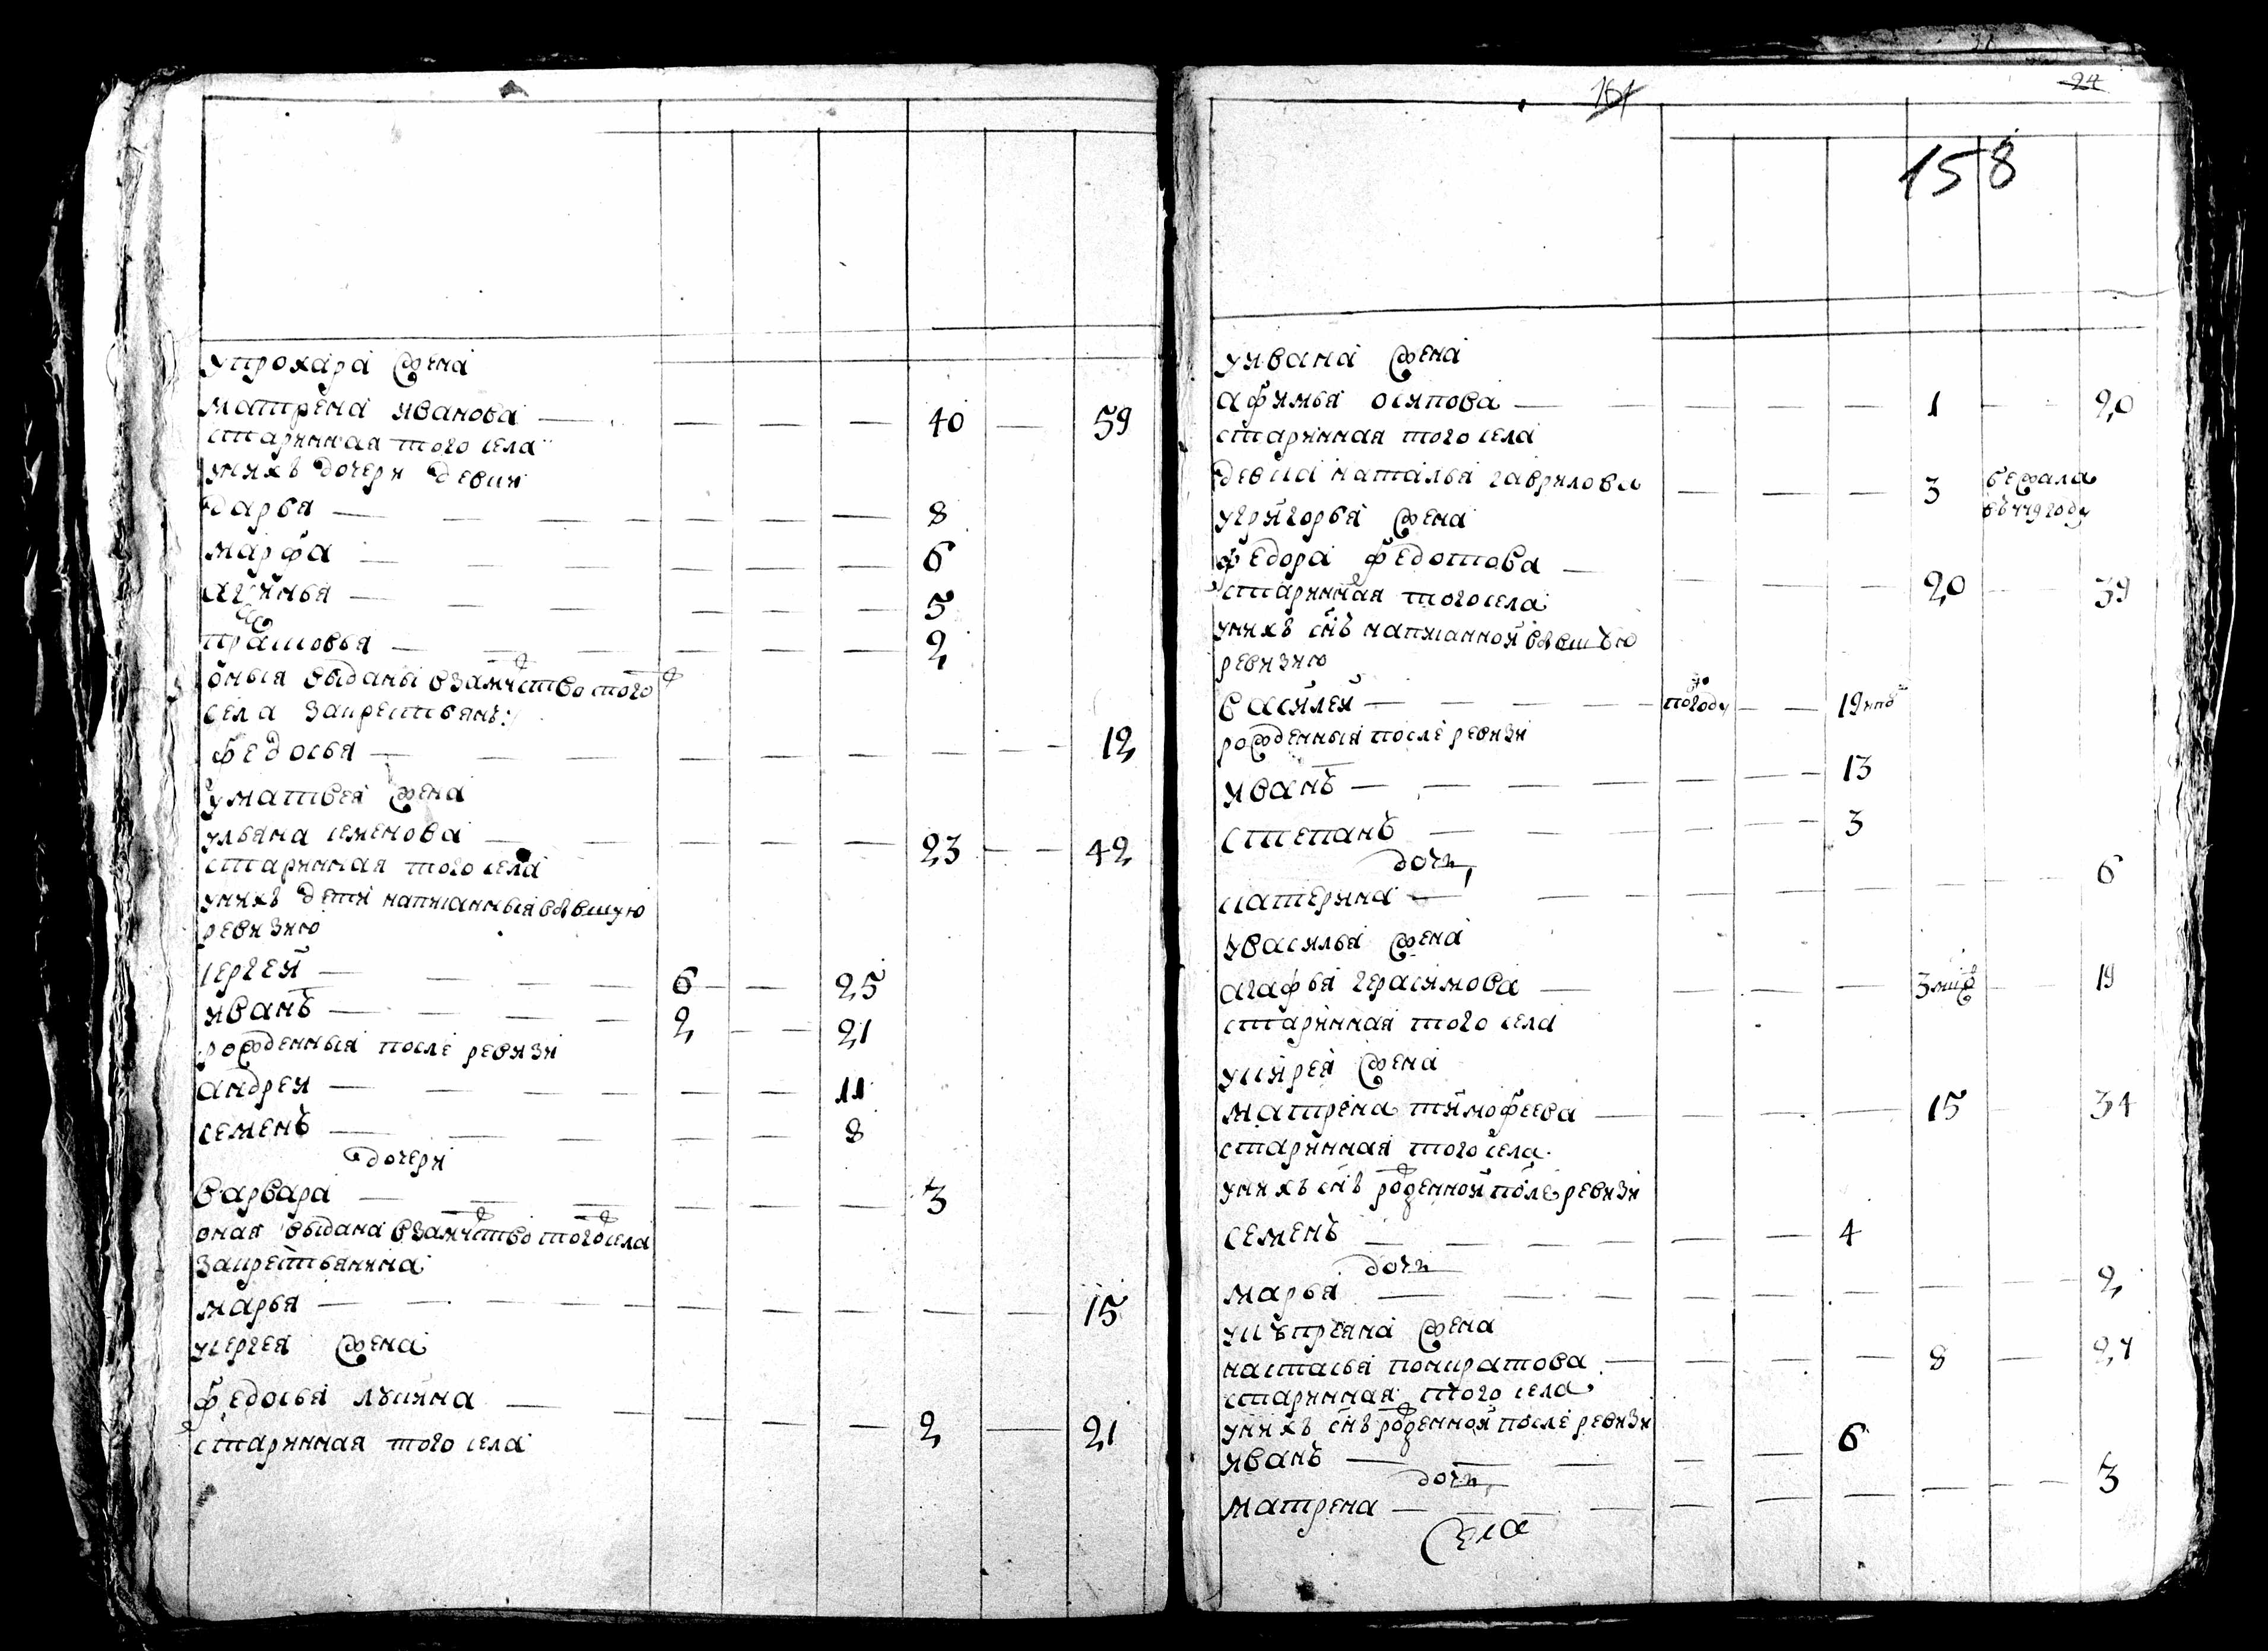 у прохара жена
матрена иванова — 40 — 59
старинная того села
у них дочери девки
дарья — 8
марфа — 6
агинья — 5
прасковья — 2
оныя выданы в замужство того
села за крестьянъ:
федосья — 12
у матвея жена
ульяна семенова — 23 — 42
старинная того села
у нихъ дети написанныя в бывшую
ревизию
сергей — 6 — 25
иванъ — 2 — 21
рожденныя после ревизи
андрей — 11
семенъ — 8
дочери
варвара — 3
оная выдана в замужство того села
за крестьянина
марья — 15
у сергея жена
федосья лукина — 2 — 21
старинная того села
161
24
158
у ивана жена
афимья осипова — 1 — 20
старинная того села
девка наталья гаврилова — 3 бежала
въ 779 году
у григорья жена
федора федотова — 20 — 39
старинная того села
у нихъ снъ написанной в бывшую
ревизию
василей — по году — 19
рожденныя после ревизи
иванъ — 13
степанъ — 3
дочь
катерина — 6
у василья жена
агафья герасимова — 3 — 19
старинная того села
у кирея жена
матрена тимофеева — 15 — 34
старинная того села
у нихъ снъ рожденной после ревизи
семенъ — 4
дочь
марья — 2
у куприяна жена
настасья понкратова — 8 — 27
старинная того села
у нихъ снъ рожденной после ревизи
иванъ — 6
дочь
матрена — 3